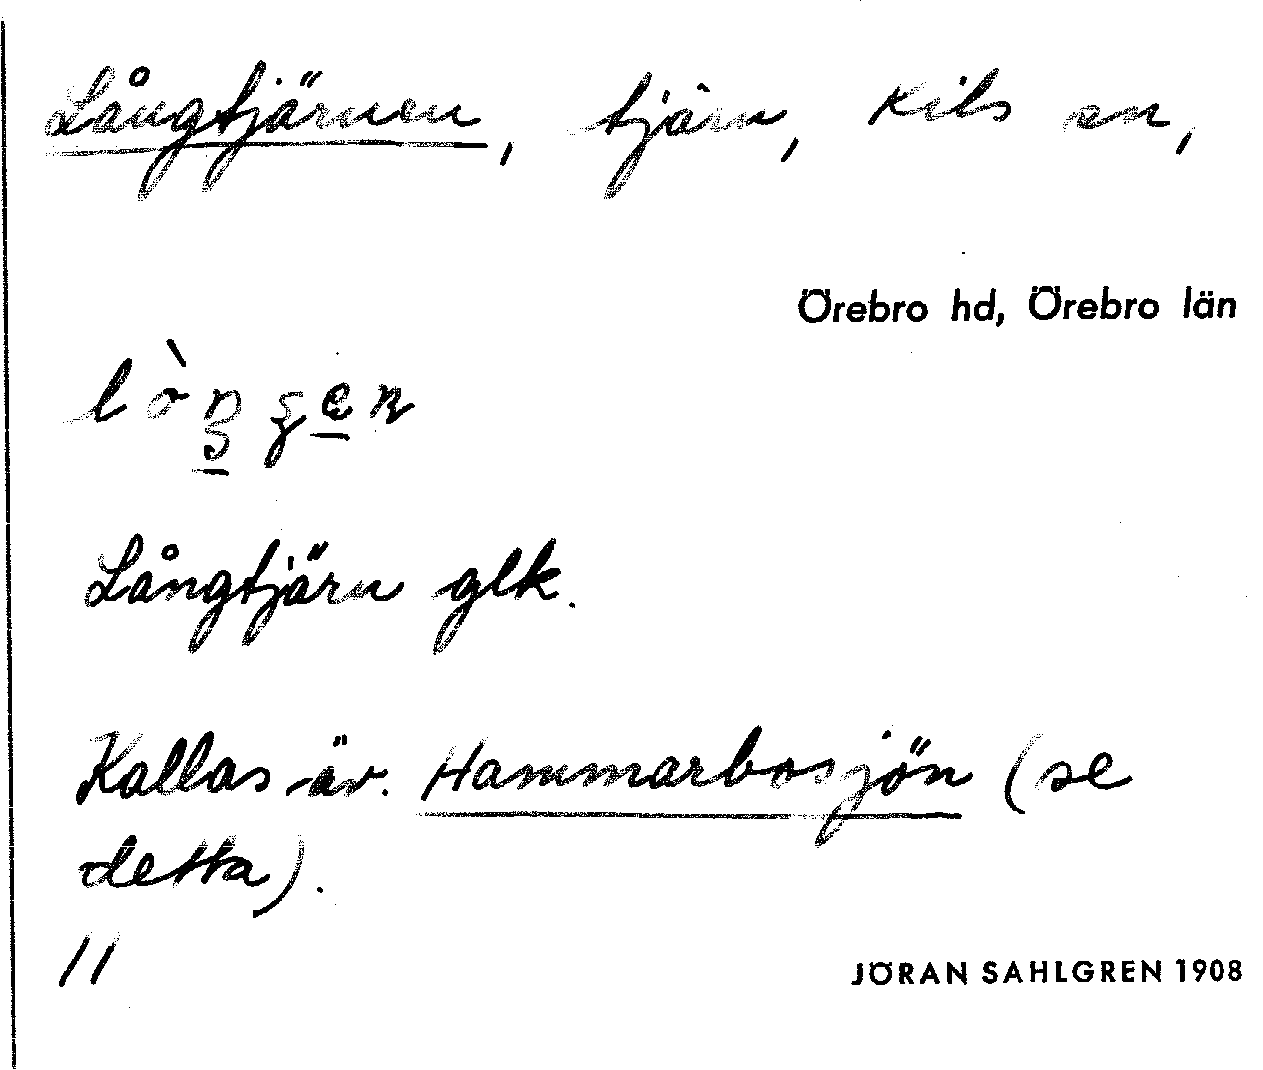 Långtjärnen, tjärn, Kils sn,
Örebro hd, Örebro län
Långtjärn glk.
Kallas äv. Hammarbosjön (se
detta).
11
JÖRAN SAHLGREN 1908